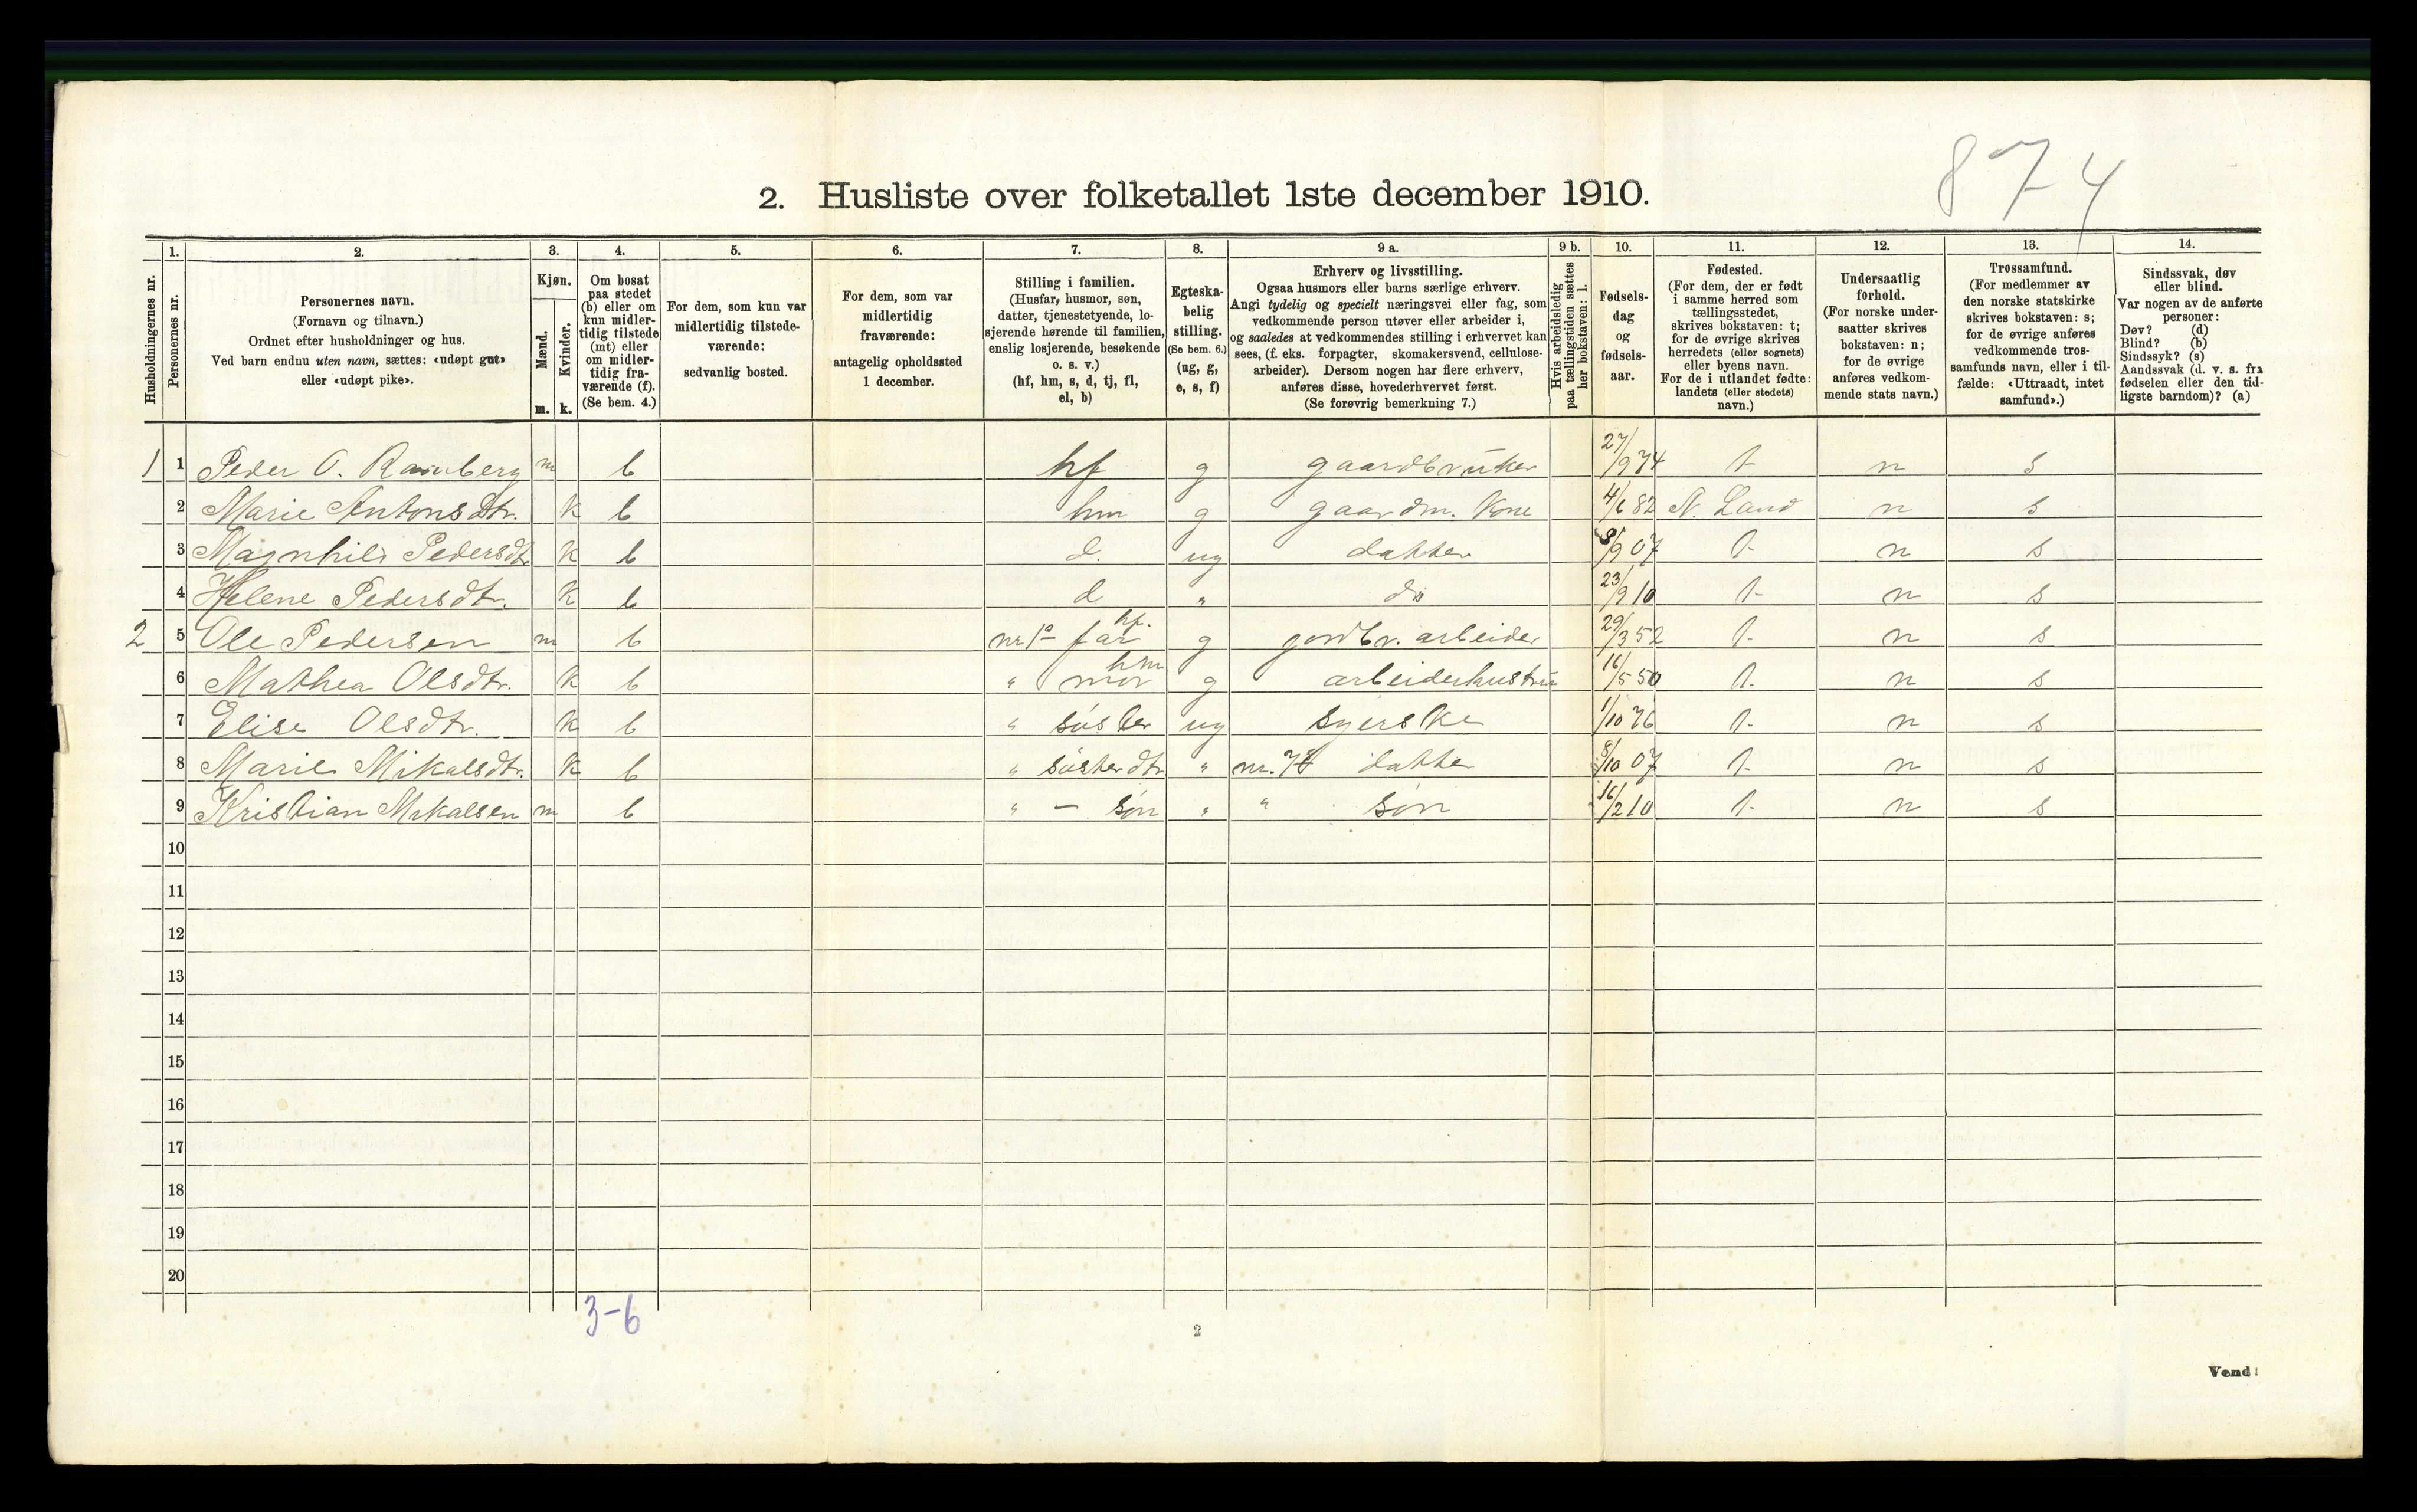 874
2. Husliste over folketallet 1ste december 1910.
Husholdningernes nr.
1.
Personernes nr.
2.
Personernes navn.
(Fornavn og tilnavn.)
Ordnet efter husholdninger og hus.
Ved barn endnu uten navn, sættes: «udøpt gut»
eller «udøpt pike».
3.
Kjøn.
Mænd.
Kvinder.
m. k.
4.
Om bosat
paa stedet
(b) eller om
kun midler-
tidig tilstede
(mt) eller
om midler-
tidig fra-
værende (f).
(Se bem. 4.)
5.
For dem, som kun var
midlertidig tilstede-
værende:
sedvanlig bosted.
6.
For dem, som var
midlertidig
fraværende:
antagelig opholdssted
1 december.
7.
Stilling i familien.
(Husfar, husmor, søn,
datter, tjenestetyende, lo-
sjerende hørende til familien,
enslig losjerende, besøkende
o. s. v.)
(hf, hm, s, d, tj, fl,
el, b)
8.
Egteska-
belig
stilling.
(Se bem. 6.)
(ug, g,
e, s, f)
9 a.
Erhverv og livsstilling.
Ogsaa husmors eller barns særlige erhverv.
Angi tydelig og specielt næringsvei eller fag, som
vedkommende person utøver eller arbeider i,
og saaledes at vedkommendes stilling i erhvervet kan
sees, (f. eks. forpagter, skomakersvend, cellulose-
arbeider). Dersom nogen har flere erhverv,
anføres disse, hovederhvervet først.
(Se forøvrig bemerkning 7.)
9 b.
Hvis arbeidsledig
paa tællingstiden sættes
her bokstaven: l.
10.
Fødsels-
dag
og
fødsels-
aar.
11.
Fødested.
(For dem, der er født
i samme herred som
tællingsstedet,
skrives bokstaven: t;
for de øvrige skrives
herredets (eller sognets)
eller byens navn.
For de i utlandet fødte:
landets (eller stedets)
navn.)
12.
Undersaatlig
forhold.
(For norske under-
saatter skrives
bokstaven: n;
for de øvrige
anføres vedkom-
mende stats navn.)
13.
Trossamfund.
(For medlemmer av
den norske statskirke
skrives bokstaven: s;
for de øvrige anføres
vedkommende tros-
samfunds navn, eller i til-
fælde: «Uttraadt, intet
samfund».)
14.
Sindssvak, døv
eller blind.
Var nogen av de anførte
personer:
Døv? (d)
Blind? (b)
Sindssyk? (s)
Aandssvak (d. v. s. fra
fødselen eller den tid-
ligste barndom)? (a)
1 1 Peder O. m b hf g gaardbruker 27/9 74 t n s
2 Marie Antonsdtr. k b hm g gaardm. kone 4/6 82 N. Land n s
3 Magnhild Pedersdtr k b d. ug datter 9/9 07 t n s
4 Helene Pedersdtr. k b d " do 23/9 10 t n s
2 5 Ole Pedersen m b nr 1s far hf. g gordbr. arbeider 29/3 52 t n s
6 Mathea Olsdtr. k b " mor hm g arbeiderhustru 16/5 50 t n s
7 Elise Olsdtr. k b " søster ug syerske 1/10 76 t n s
8 Marie Mikalsdtr. k b " søsterdtr " nr. 7s datter 8/10 07 t n s
9 Kristian Mikalsen m b " — søn " " søn 16/2 10 t n s
10
11
12
13
14
15
16
17
18
19
20
3-6
2
Vend!